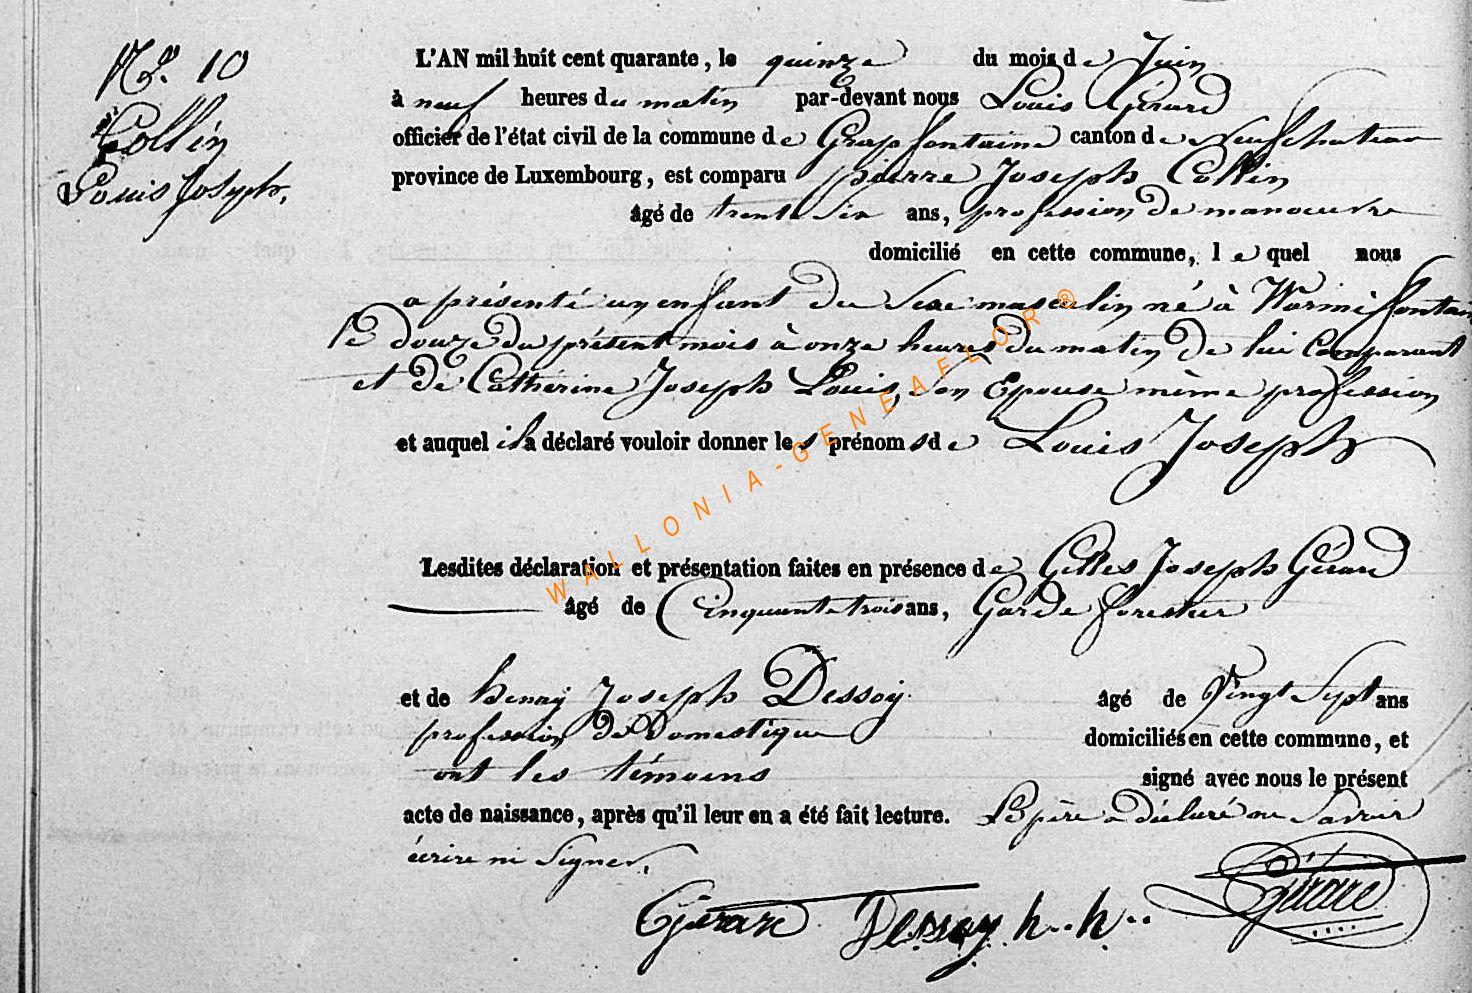 No. 10
Collin
Louis Joseph.
L'AN mil huit cent quarante, le quinze du mois de Juin
à neuf heures du matin par-devant nous Louis Gerard
officier de l'état civil de la commune de Grapfontaine canton de Neufchateau
province de Luxembourg, est comparu pierre Joseph Collin
âgé de trente six ans, profession de manoeuvre
domicilié en cette commune, lequel nous
a présenté un enfant du Sexe masculin né à Warmifontaine
le douze du présent mois à onze heures du matin de lui Comparant
et de Catherine Joseph Louis, son Epouse même profession
et auquel il a déclaré vouloir donner les prénoms de Louis Joseph
Lesdites déclaration et présentation faites en présence de Gilles Joseph Gérard
âgé de Cinquante trois ans, Garde forestier
et de henry Joseph Dessoy âgé de Vingt Sept ans
profession de Domestique domiciliés en cette commune, et
ont les témoins signé avec nous le présent
acte de naissance, après qu'il leur en a été fait lecture. Le père a déclaré ne Savoir
écrire ni Signer.
Gérard Dessoy h..h.. Gérard
WALLONIA-GENEAFLOR®